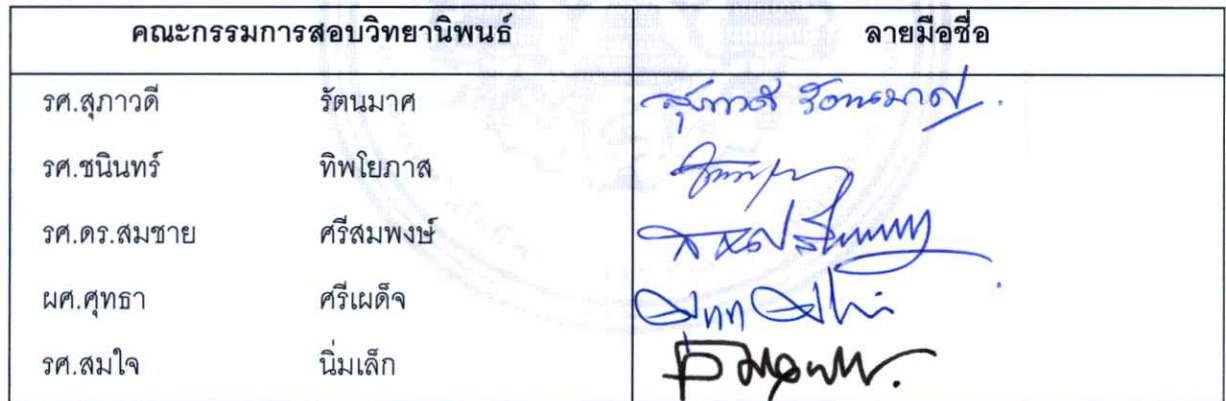 คณะกรรมการสอบวิทยานิพนธ์ ลายมือชื่อ
รศ.สุภาวดี รัตนมาศ สุภาวดี รัตนมาศ
รศ.ชนินทร์ ทิพโยภาส
รศ.ดร.สมชาย ศรีสมพงษ์
ผศ.ศุทธา ศรีเผด็จ
รศ.สมใจ นิ่มเล็ก